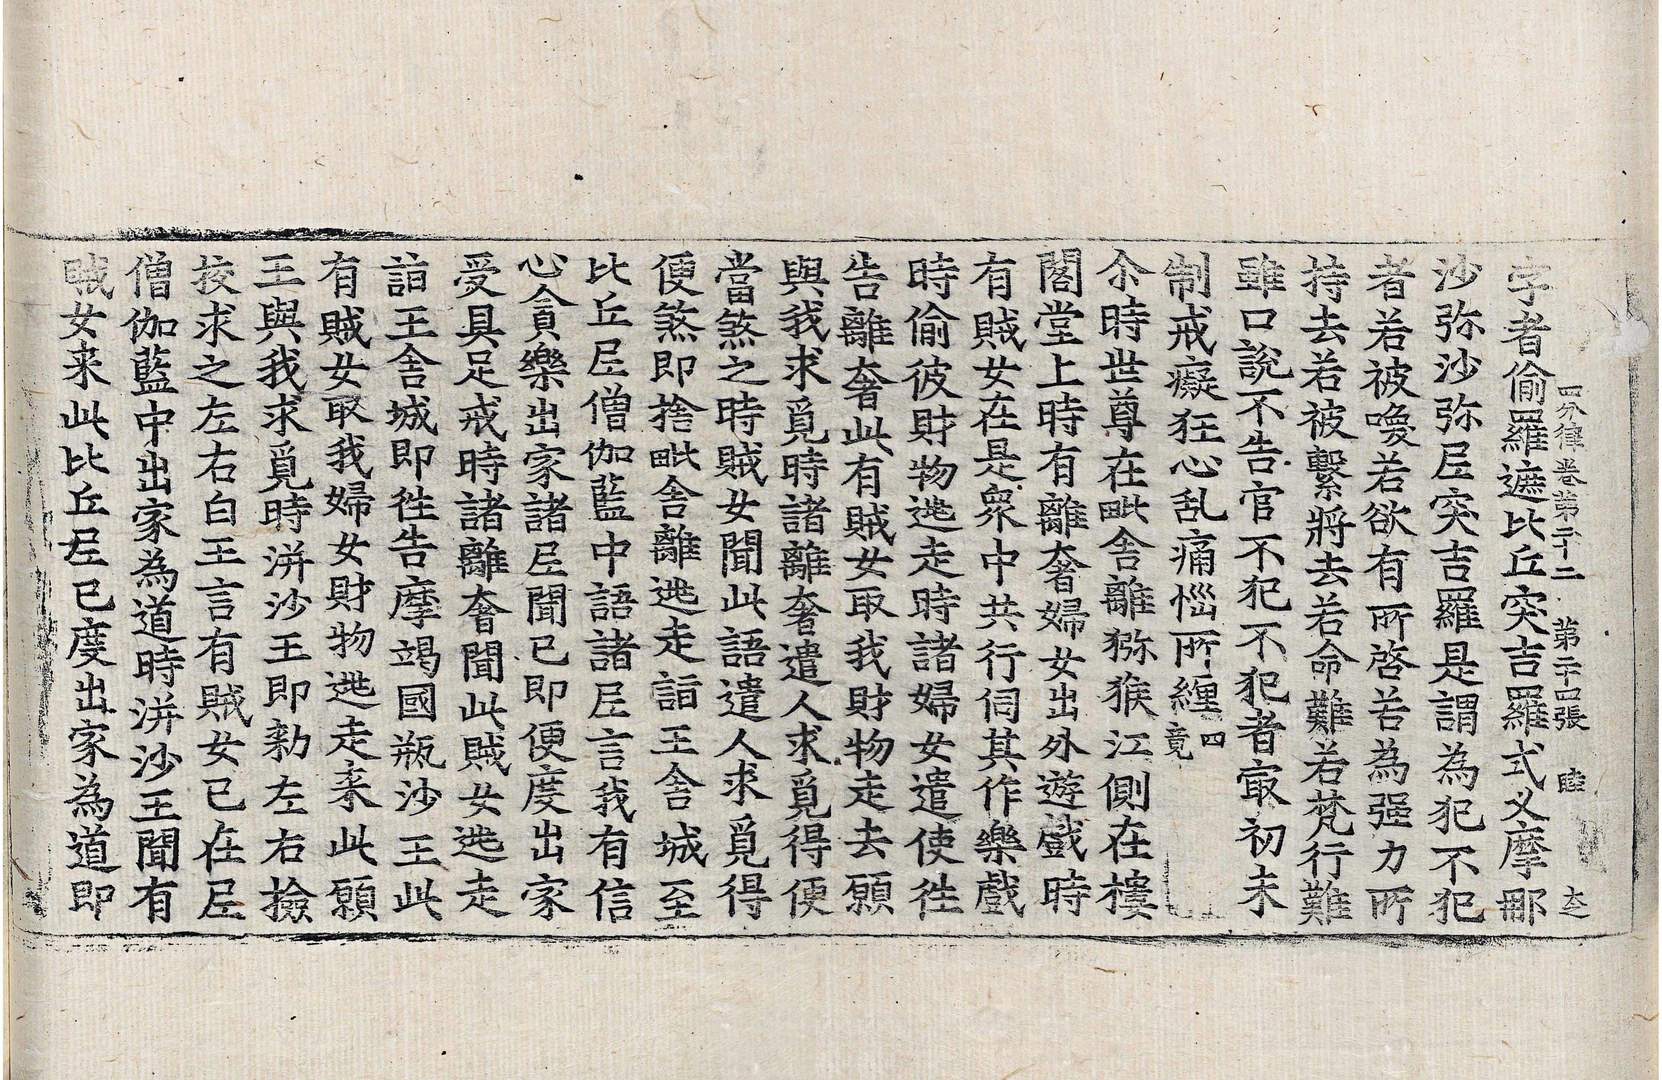 四分律卷第二十二 第二十四張 睦
字者偷羅遮比丘突吉羅式叉摩那
沙弥沙弥尼突吉羅是謂為犯不犯
者若被喚若欲有所啓若為强力所
持去若被繫將去若命難若梵行難
雖口說不告官不犯不犯者㝡初未
制戒癡狂心乱痛惱所纏四竟
尒時世尊在毗舍離獼猴江側在樓
閣堂上時有離奢婦女出外遊戲時
有賊女在是衆中共行伺其作樂戲
時偷彼財物逃走時諸婦女遣使往
告離奢此有賊女取我財物走去願
與我求覓時諸離奢遣人求覓得便
當煞之時賊女聞此語遣人求覓得
便煞即捨毗舍離逃走詣王舍城至
比丘尼僧伽藍中語諸尼言我有信
心貪樂出家諸尼聞已即便度出家
受具足戒時諸離奢聞此賊女逃走
詣王舍城即往告摩竭國瓶沙王此
有賊女取我婦女財物逃走来此願
王與我求覓時洴沙王即勑左右撿
挍求之左右白王言有賊女已在尼
僧伽藍中出家為道時洴沙王聞有
賊女来此比丘尼已度出家為道即